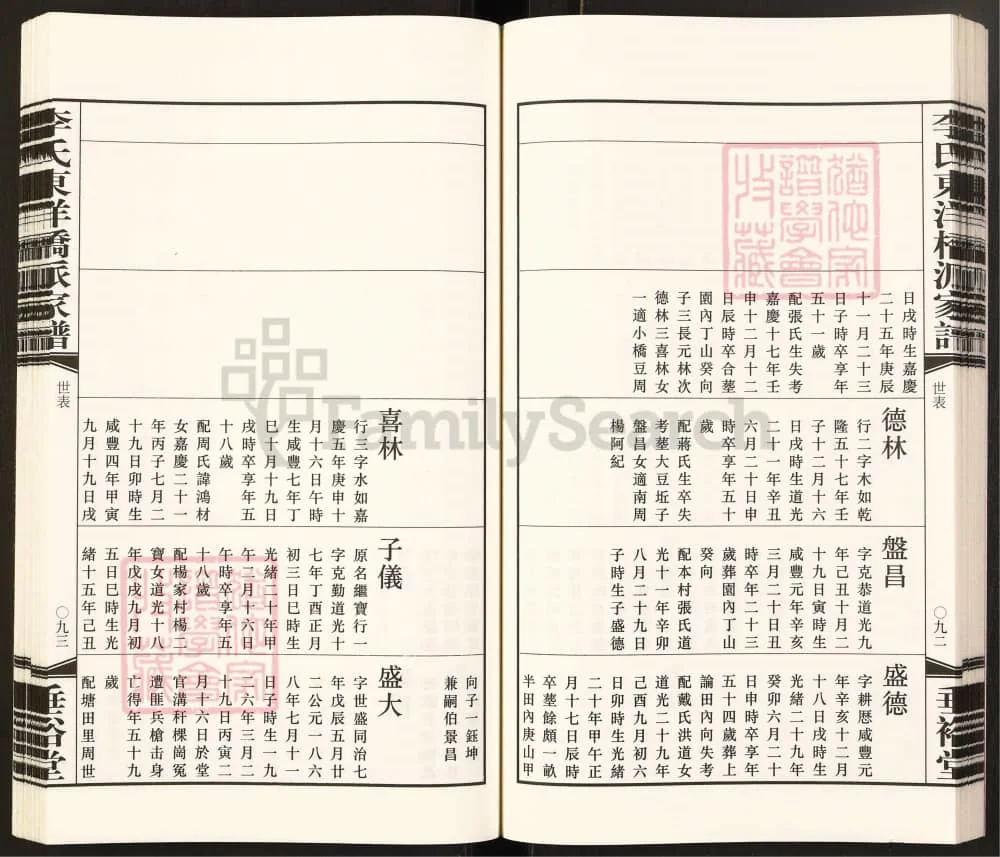 李氏東洋橋派家譜
世表
〇九二
垂裕堂
日戌時生嘉慶
二十五年庚辰
十一月二十三
日子時卒享年
五十一歲
配張氏生失考
嘉慶十七年壬
申十二月十二
日辰時卒合塟
園內丁山癸向
子三長元林次
德林三喜林女
一適小橋豆周
德林
行二字木如乾
隆五十七年壬
子十二月十六
日戌時生道光
二十一年辛丑
六月二十日申
時卒享年五十
歲
配蔣氏生卒失
考塟大豆坵子
盤昌女適南周
楊阿紀
盤昌
字克恭道光九
年己丑十月二
十九日寅時生
咸豐元年辛亥
三月二十日丑
時卒年二十三
歲葬園內丁山
癸向
配本村張氏道
光十一年辛卯
八月二十九日
子時生子盛德
盛德
字耕曆咸豐元
年辛亥十二月
十八日戌時生
光緒二十九年
癸卯六月二十
日申時卒享年
五十四歲葬上
論田內向失考
配戴氏洪道女
道光二十九年
己酉九月初六
日卯時生光緒
二十年甲午正
月十七日辰時
卒塟餘頗一畝
半田內庚山甲
向子一鈺坤
兼嗣伯景昌
喜林
行三字水如嘉
慶五年庚申十
月十六日午時
生咸豐七年丁
巳十月十九日
戌時卒享年五
十八歲
配周氏諱鴻材
女嘉慶二十一
年丙子七月二
十九日卯時生
咸豐四年甲寅
九月十九日戌
子儀
原名繼寶行一
字克勤道光十
七年丁酉正月
初三日巳時生
光緒二十年甲
午二月十六日
午時卒享年五
十八歲
配楊家村楊二
寶女道光十八
年戊戌九月初
五日巳時生光
緒十五年己丑
盛大
字世盛同治七
年戊辰五月廿
二公元一八六
八年七月十一
日子時生一九
二六年三月二
十九日丙寅二
月十六日於堂
官溝秆棵崗冤
遭匪兵槍击身
亡得年五十九
歲
配塘田里周世
李氏東洋橋派家譜
世表
〇九三
垂裕堂
FamilySearch